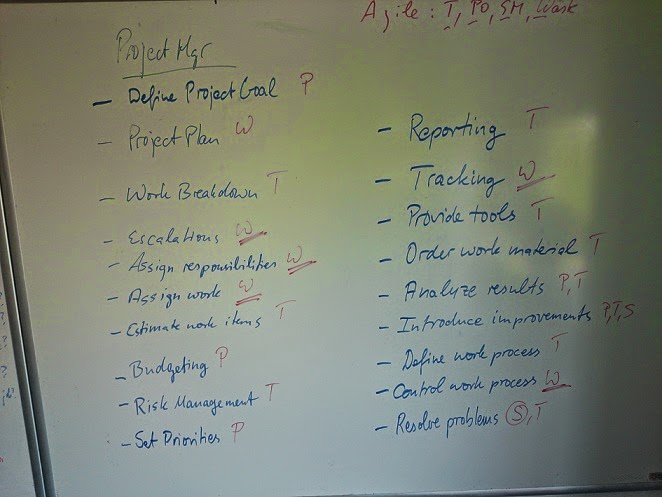 Agile : T, PO, SM, Waste
Project Mgr
- Define Project Goal P
- Project Plan W
- Work Breakdown T
- Escalations W
- Assign responsibilities W
- Assign work W
- Estimate work items T
- Budgeting P
- Risk Management T
- Set Priorities P
- Reporting T
- Tracking W
- Provide tools T
- Order work material T
- Analyze results P, T
- Introduce improvements P,T,S
- Define work process T
- Control work process W
- Resolve problems S, T